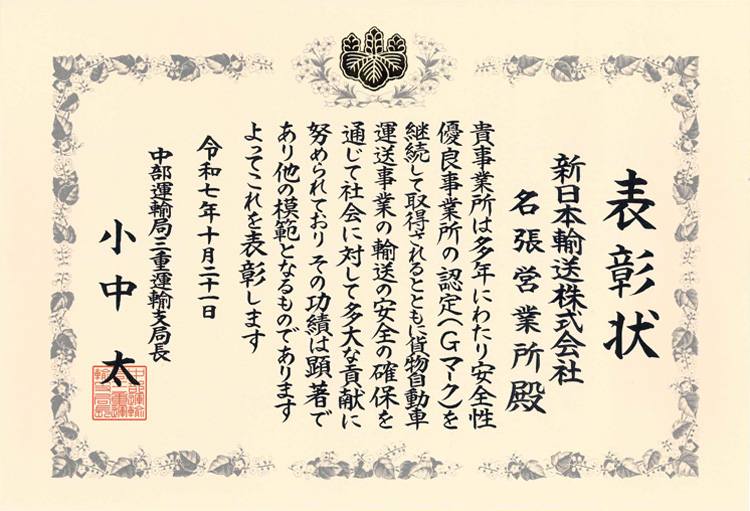 表彰状
新日本輸送株式会社
名張営業所殿
貴事業所は多年にわたり安全性
優良事業所の認定（Gマーク）を
継続して取得されるとともに貨物自動車
運送事業の輸送の安全の確保を
通じて社会に対して多大な貢献に
努められておりその功績は顕著で
あり他の模範となるものであります
よってこれを表彰します
令和七年十月二十一日
中部運輸局三重運輸支局長
小中太